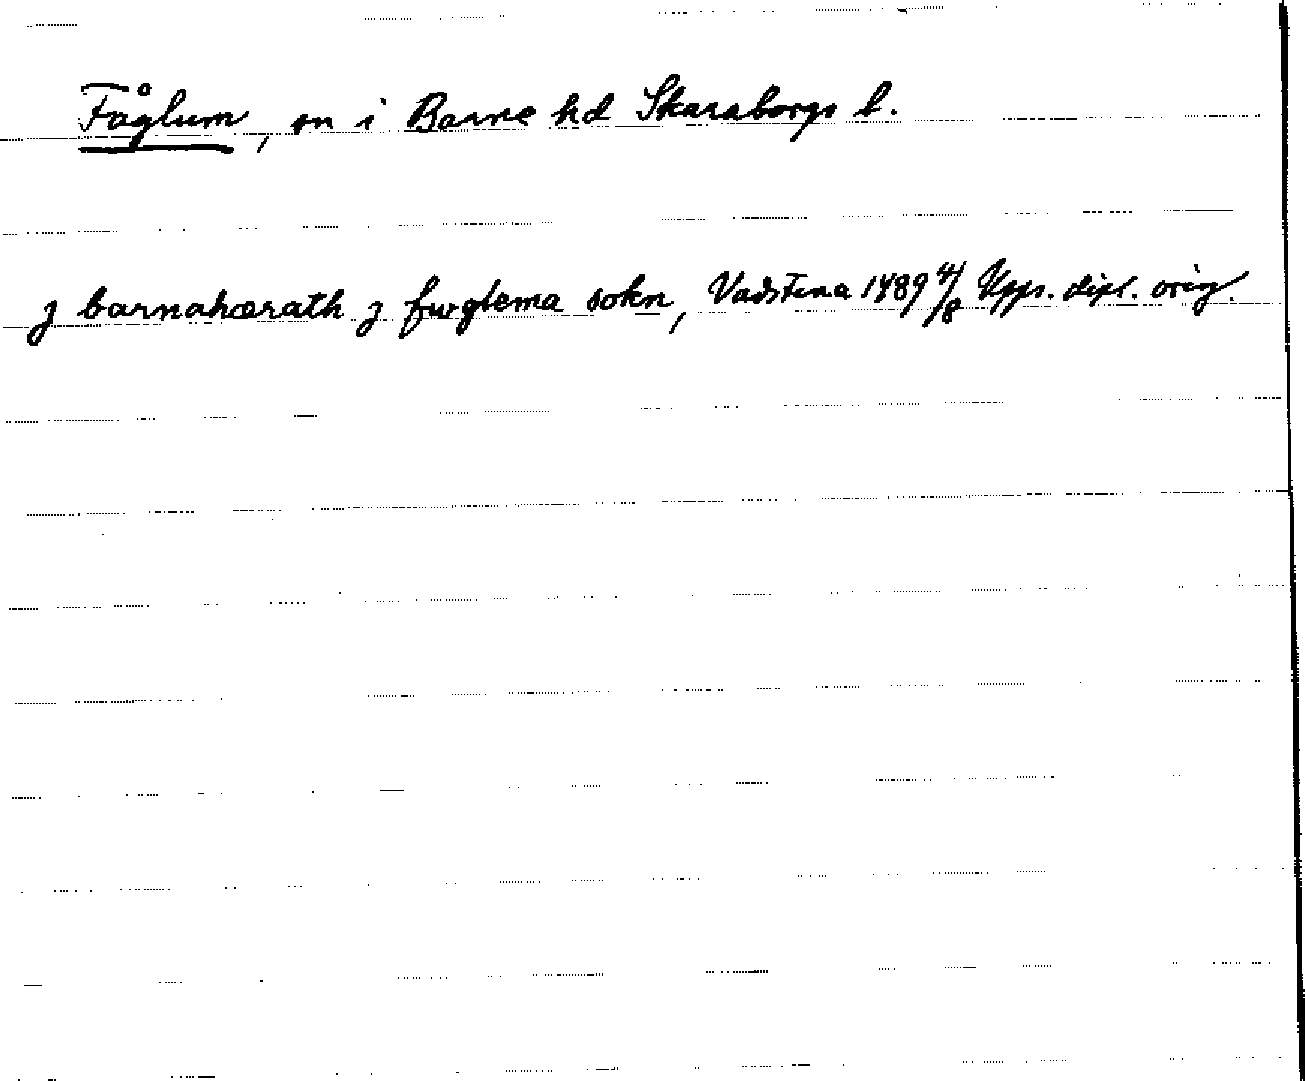 Fåglum, sn i Barne hd Skaraborgs l.
j barnahærath j fwglema sokn, Vadstena 1489 4/8 Upps. dipl. orig.